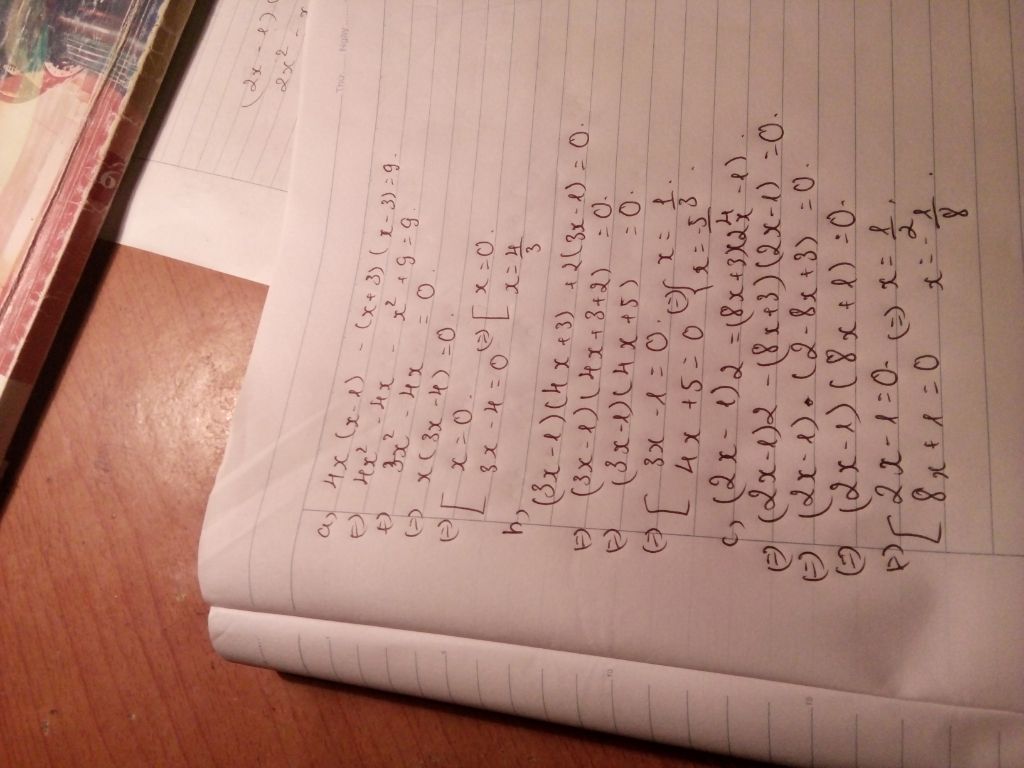 (2x - 1)(
2x² - x
Thứ
Ngày
a, 4x(x-1) - (x+3)(x-3)=9.
(=) 4x² - 4x - x² + 9 = 9.
(=) 3x² - 4x = 0.
(=) x(3x-4)=0.
(=) [ x=0. (=) [ x=0.
3x-4=0 x=4/3
b, (3x-1)(4x+3) + 2(3x-1) = 0.
(=) (3x-1)(4x+3+2) = 0.
(=) (3x-1)(4x+5) = 0.
(=) [ 3x-1=0. (=) [ x=1/3
4x+5=0 x=5/4
c, (2x-1)2 = (8x+3)(2x-1).
(=) (2x-1)2 - (8x+3)(2x-1) = 0.
(=) (2x-1).(2-8x+3) = 0.
(=) (2x-1)(8x+1)=0.
(=) [ 2x-1=0. (=) x=1/2.
8x+1=0 x=-1/8.